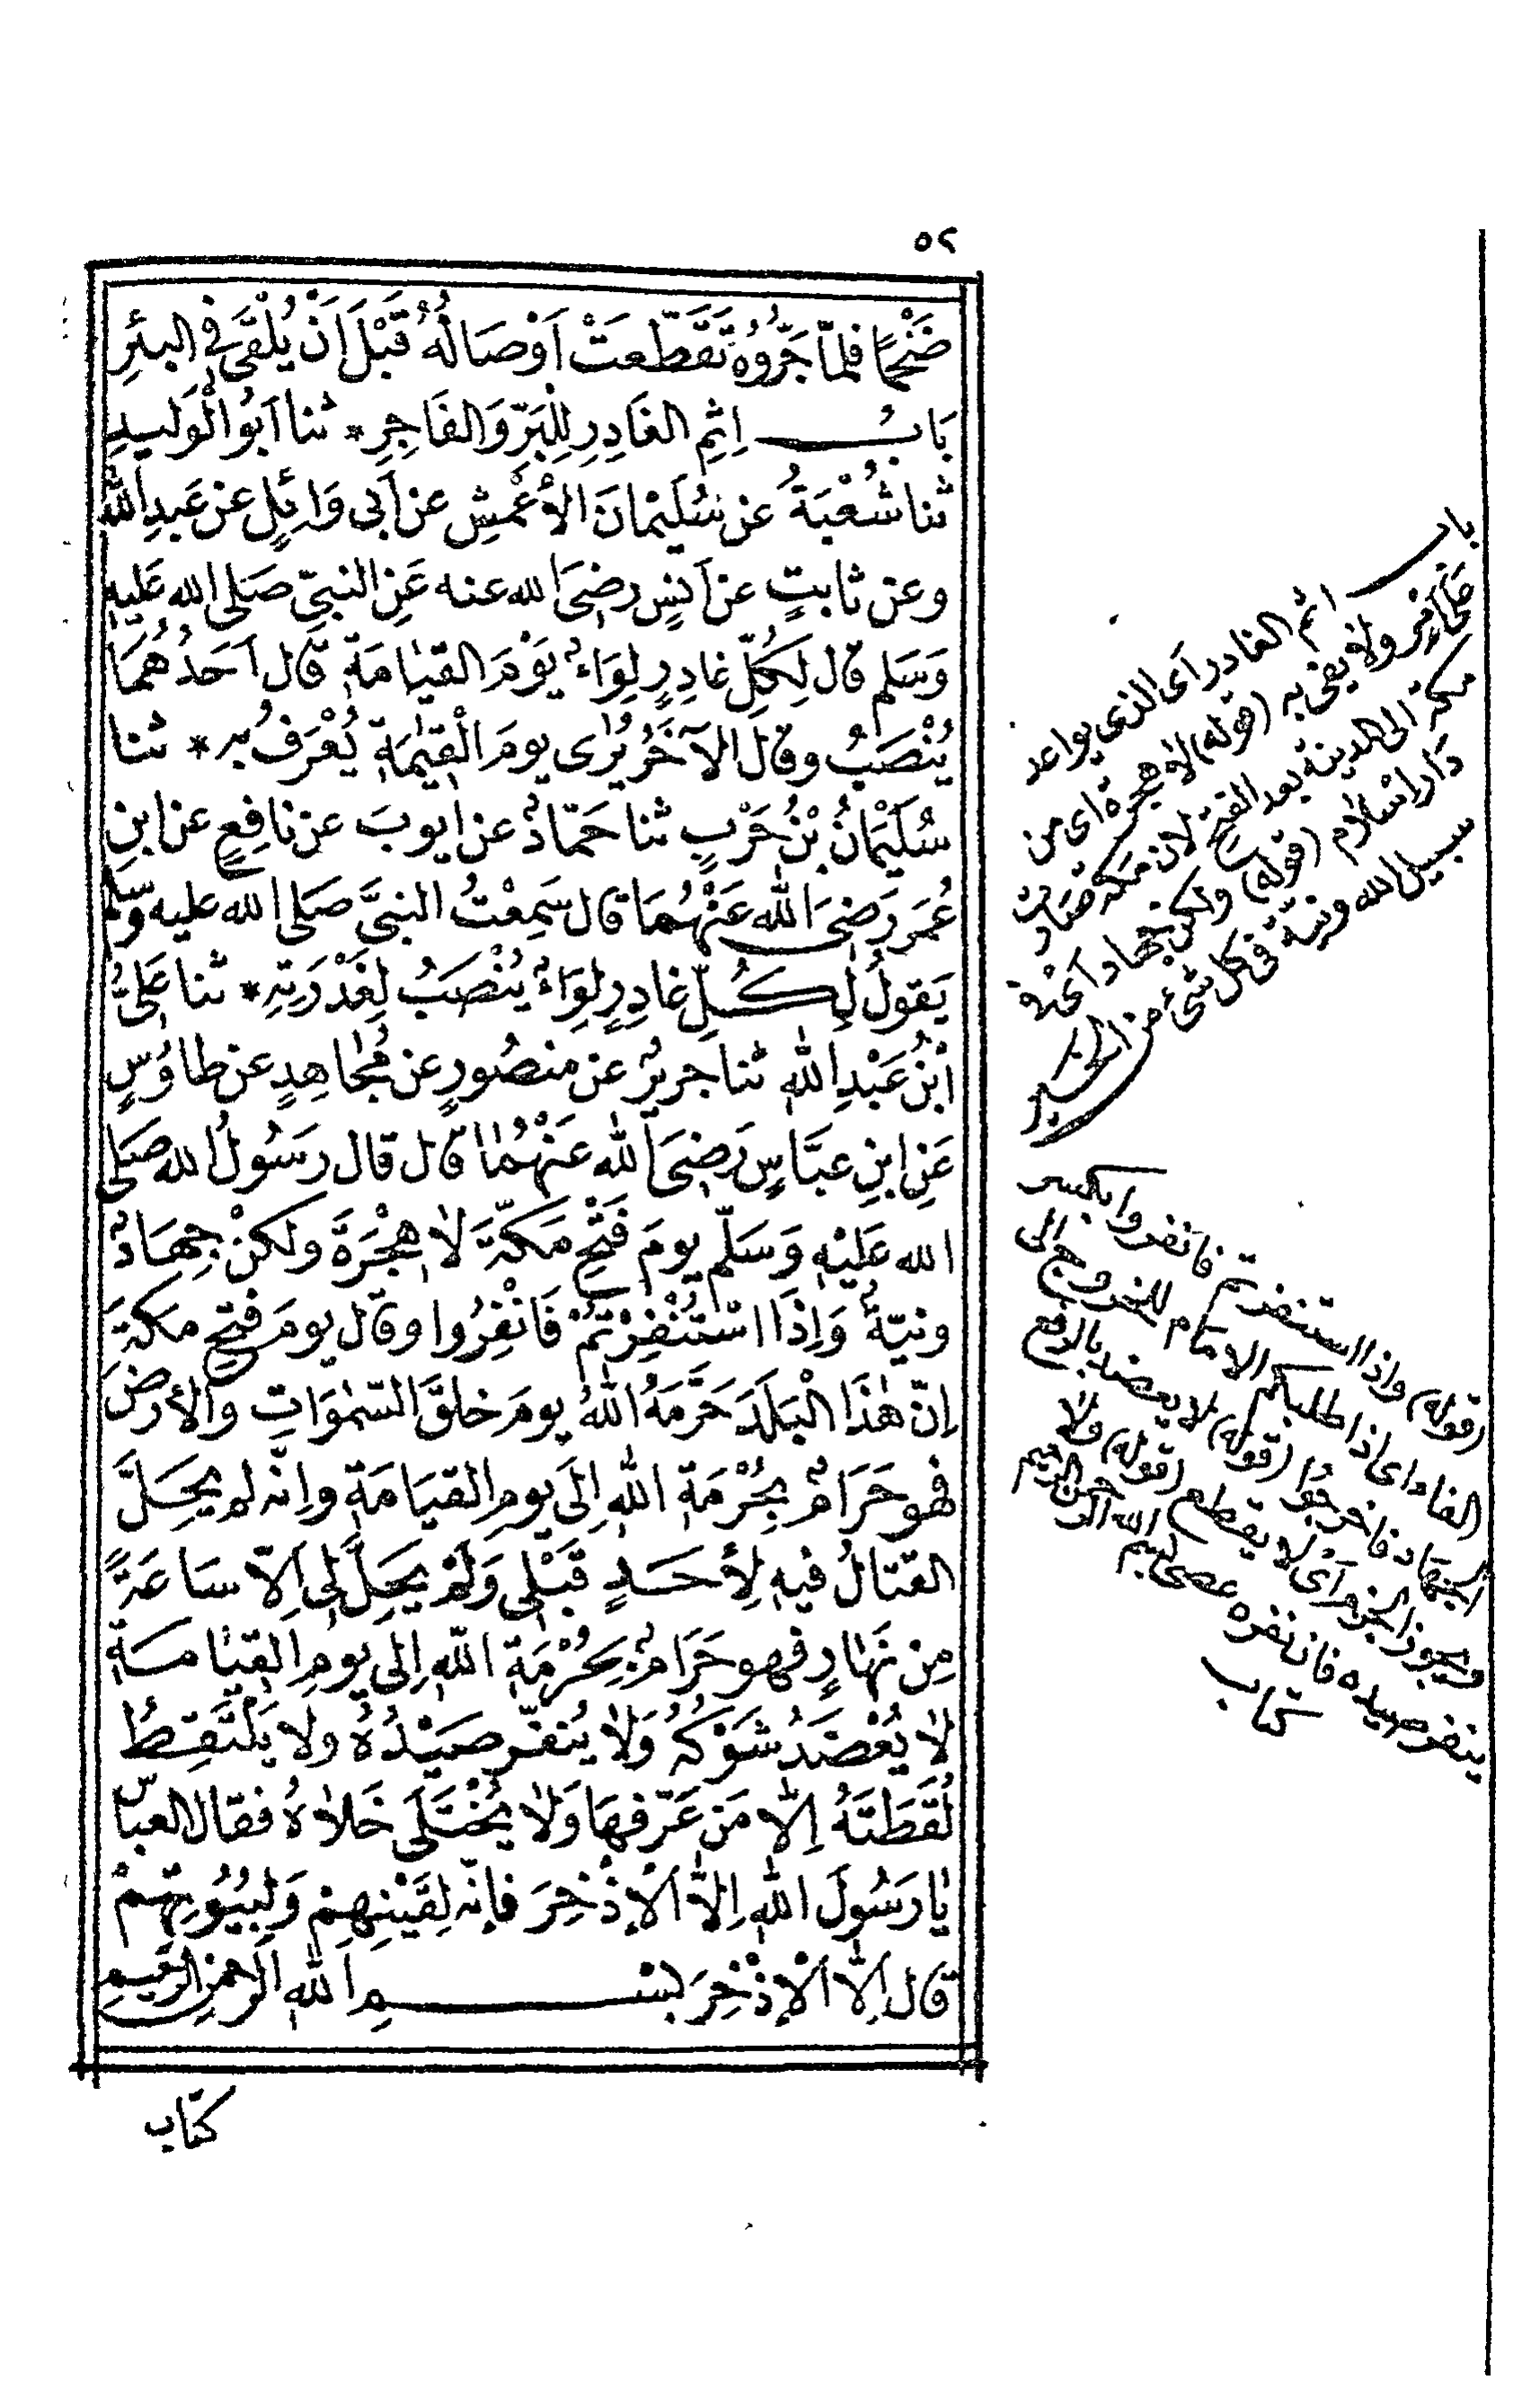 ٥٢
ضَخْمًا فلمّا جَرُّوُهُ تَقَطَّعَتْ اَوْصَالُهُ قَبْلَ اَنْ يُلْقَى فِى البئرِ
بَابُ اِثْمِ الغَادِرِ لِلْبَرِّ وَالفَاجِرِ * ثنا اَبُو الْوَلِيدِ
ثنا شُعْبَةُ عن سُلَيْمَانَ الاَعْمَشِ عن اَبى وَائِلٍ عن عَبدِ اللّٰه
وعن ثابتٍ عن اَنَسٍ رضىَ الله عنه عَنِ النبىِّ صَلى الله عَليهِ
وَسَلم قال لِكُلِّ غادِرٍ لِوَاءٌ يَوْمَ القيٰامَةِ قال اَحَدُهُمَا
يُنْصَبُ وقال الآخَرُ يُرٰى يومَ الْقِيٰمَةِ يُعْرَفُ به * ثنا
سُلَيْمَانُ بْنُ حَرْبٍ ثنا حَمّادٌ عن ايوبَ عن نافِعٍ عن ابنِ
عُمَرَ رَضىَ اللّٰه عَنْهُمَا قال سَمِعْتُ النبىَّ صَلى الله عليه وسّلم
يَقولُ لِكُلِّ غادِرٍ لِوَاءٌ يُنْصَبُ لِغَدْرَتِهِ * ثنا عَلِىُّ
ابْنُ عَبْدِ اللّٰهِ ثنا جريرٌ عن منصُورٍ عن مُجٰاهِدٍ عن طاوُسٍ
عَنِ ابنِ عبَّاسٍ رَضىَ اللّٰه عَنْهُمٰا قال قال رَسُولُ الله صَلى
الله عَلَيْهِ وَسَلّم يومَ فَتْحِ مَكّةَ لاٰ هِجْرَةَ ولكنْ جِهَادٌ
ونيّةٌ وَاِذَا اسْتُنْفِرْتُمْ فَانْفِرُوا وقال يومَ فتحِ مكةَ
اِنّ هٰذَا الْبَلَدَ حَرَّمَهُ اللّٰهُ يومَ خلقَ السّمٰوَاتِ والأرضَ
فهو حَرَامٌ بِحُرْمَةِ اللّٰهِ اِلَى يومِ القيَامَةِ واِنّه لم يَحِلَّ
القتالُ فيهِ لِأحَدٍ قَبْلِى وَلَمْ يَحِلَّ لِى اِلاّ سَاعَةً
مِن نَهٰارٍ فهو حَرَامٌ بِحُرْمَةِ اللّٰهِ اِلى يومِ القِيٰامَةِ
لاٰ يُعْضَدُ شَوْكُهُ وَلاٰ يُنفّر صَيْدُهُ ولا يَلْتَقِطُ
لُقَطَتَهُ اِلاّٰ مَن عَرّفهَا وَلاٰ يُخْتَلَى خَلاٰهُ فقال العبّاس
يٰا رَسُولَ اللّٰهِ اِلاّٰ الْاِذْخِرَ فإنّه لِقَيْنِهِمْ وَلِبُيُوتِهِمْ
قال اِلاّٰ الْاِذْخِرَ بسْمِ اللّٰهِ الرحمنِ الرحيمِ
كتاب
باب اثم الغادر اى الذى يواعد
على امر ولا يفى به (قوله) لا هجرة اى من
مكة الى المدينة بعد الفتح لان مكة صارت
دار اسلام (قوله) ولكن جهاد اى فى
سبيل الله ونية فى كل شئ من الخير
(قوله) واذا استنفرتم فانفروا بكسر
الفاء اى اذا طلبكم الامام للخروج الى
الجهاد فاخرجوا (قوله) لا يعضد بالرفع
ويجوز الجزم اى لا يقطع (قوله) ولا
ينفر صيده فان نفره عصى بسم الله الرحمن الرحيم
كتاب